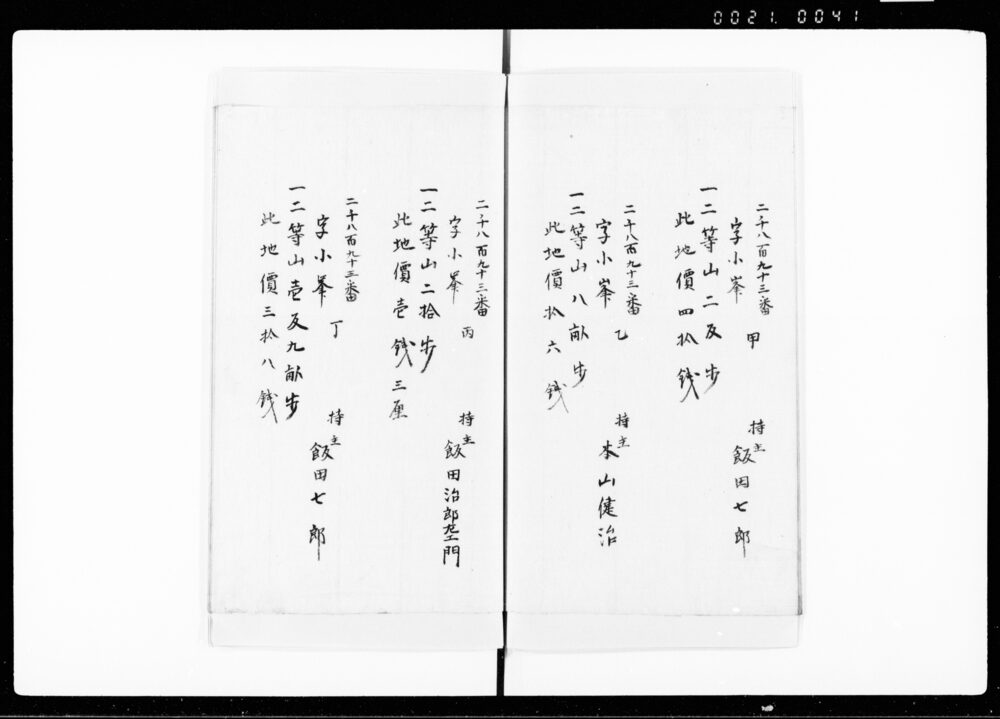 0021.0041
二千八百九十三番 甲
字小峯
一二等山二反歩
此地價四拾銭
持主
飯田七郎
二千八百九十三番 乙
字小峯
一二等山八畝歩
此地價拾六銭
持主
本山健治
二千八百九十三番 丙
字小峯
一二等山二拾歩
此地價壱銭三厘
持主
飯田治郎左エ門
二千八百九十三番 丁
字小峯
一二等山壱反九畝歩
此地價三拾八銭
持主
飯田七郎